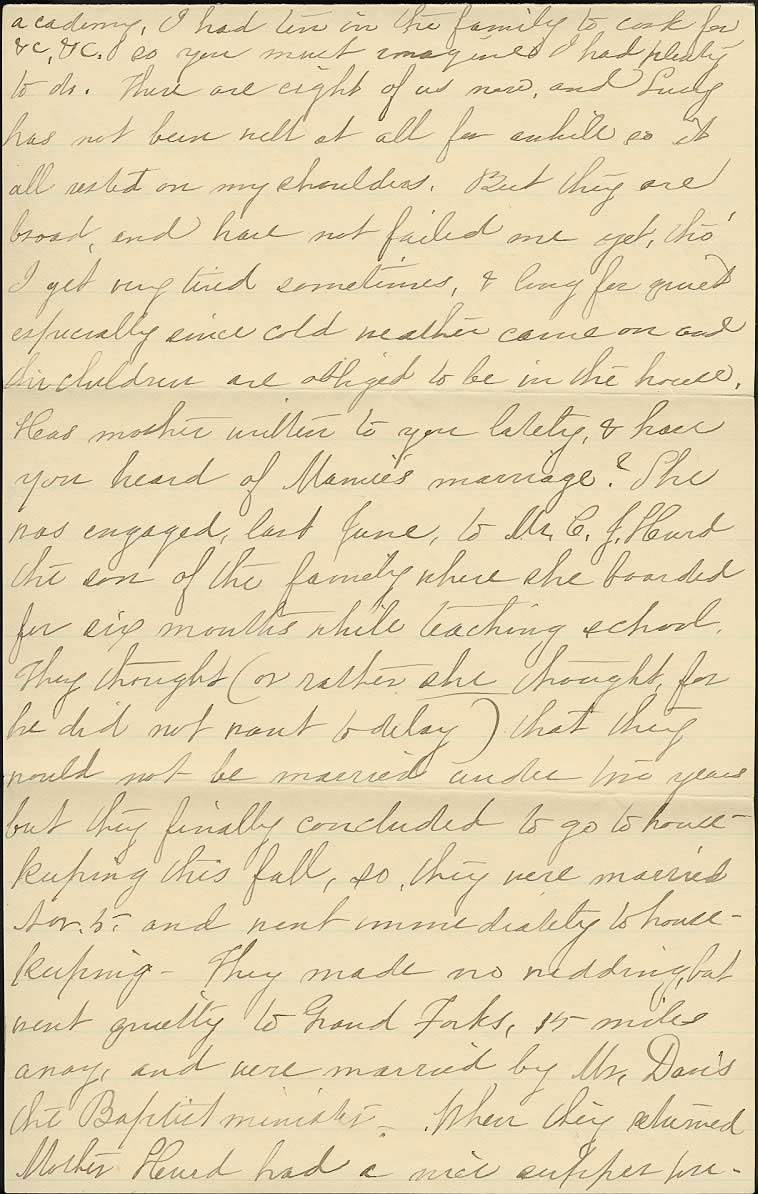 academy, I had ten in the family to cook for
&c, &c. so you must imagine I had plenty
to do. There are eight of us now, and Lucy
has not been well at all for awhile so it
all rested on my shoulders. But they are
broad, and have not failed me yet, tho'
I get very tired sometimes, & long for quiet
especially since cold weather came on and
the children are obliged to be in the house.
Has mother written to you lately, & have
you heard of Mamie's marriage? She
was engaged, last June, to Mr. C. J. Hurd
the son of the family where she boarded
for six months while teaching school.
They thought (or rather she thought, for
he did not want to delay) that they
would not be married under two years
but they finally concluded to go to house-
keeping this fall, so, they were married
Nov. 5. and went immediately to house-
keeping - They made no wedding, but
went quietly to Grand Forks, 15 miles
away, and were married by Mr. Davis
the Baptist minister - When they returned
Mother Hurd had a nice supper pre-